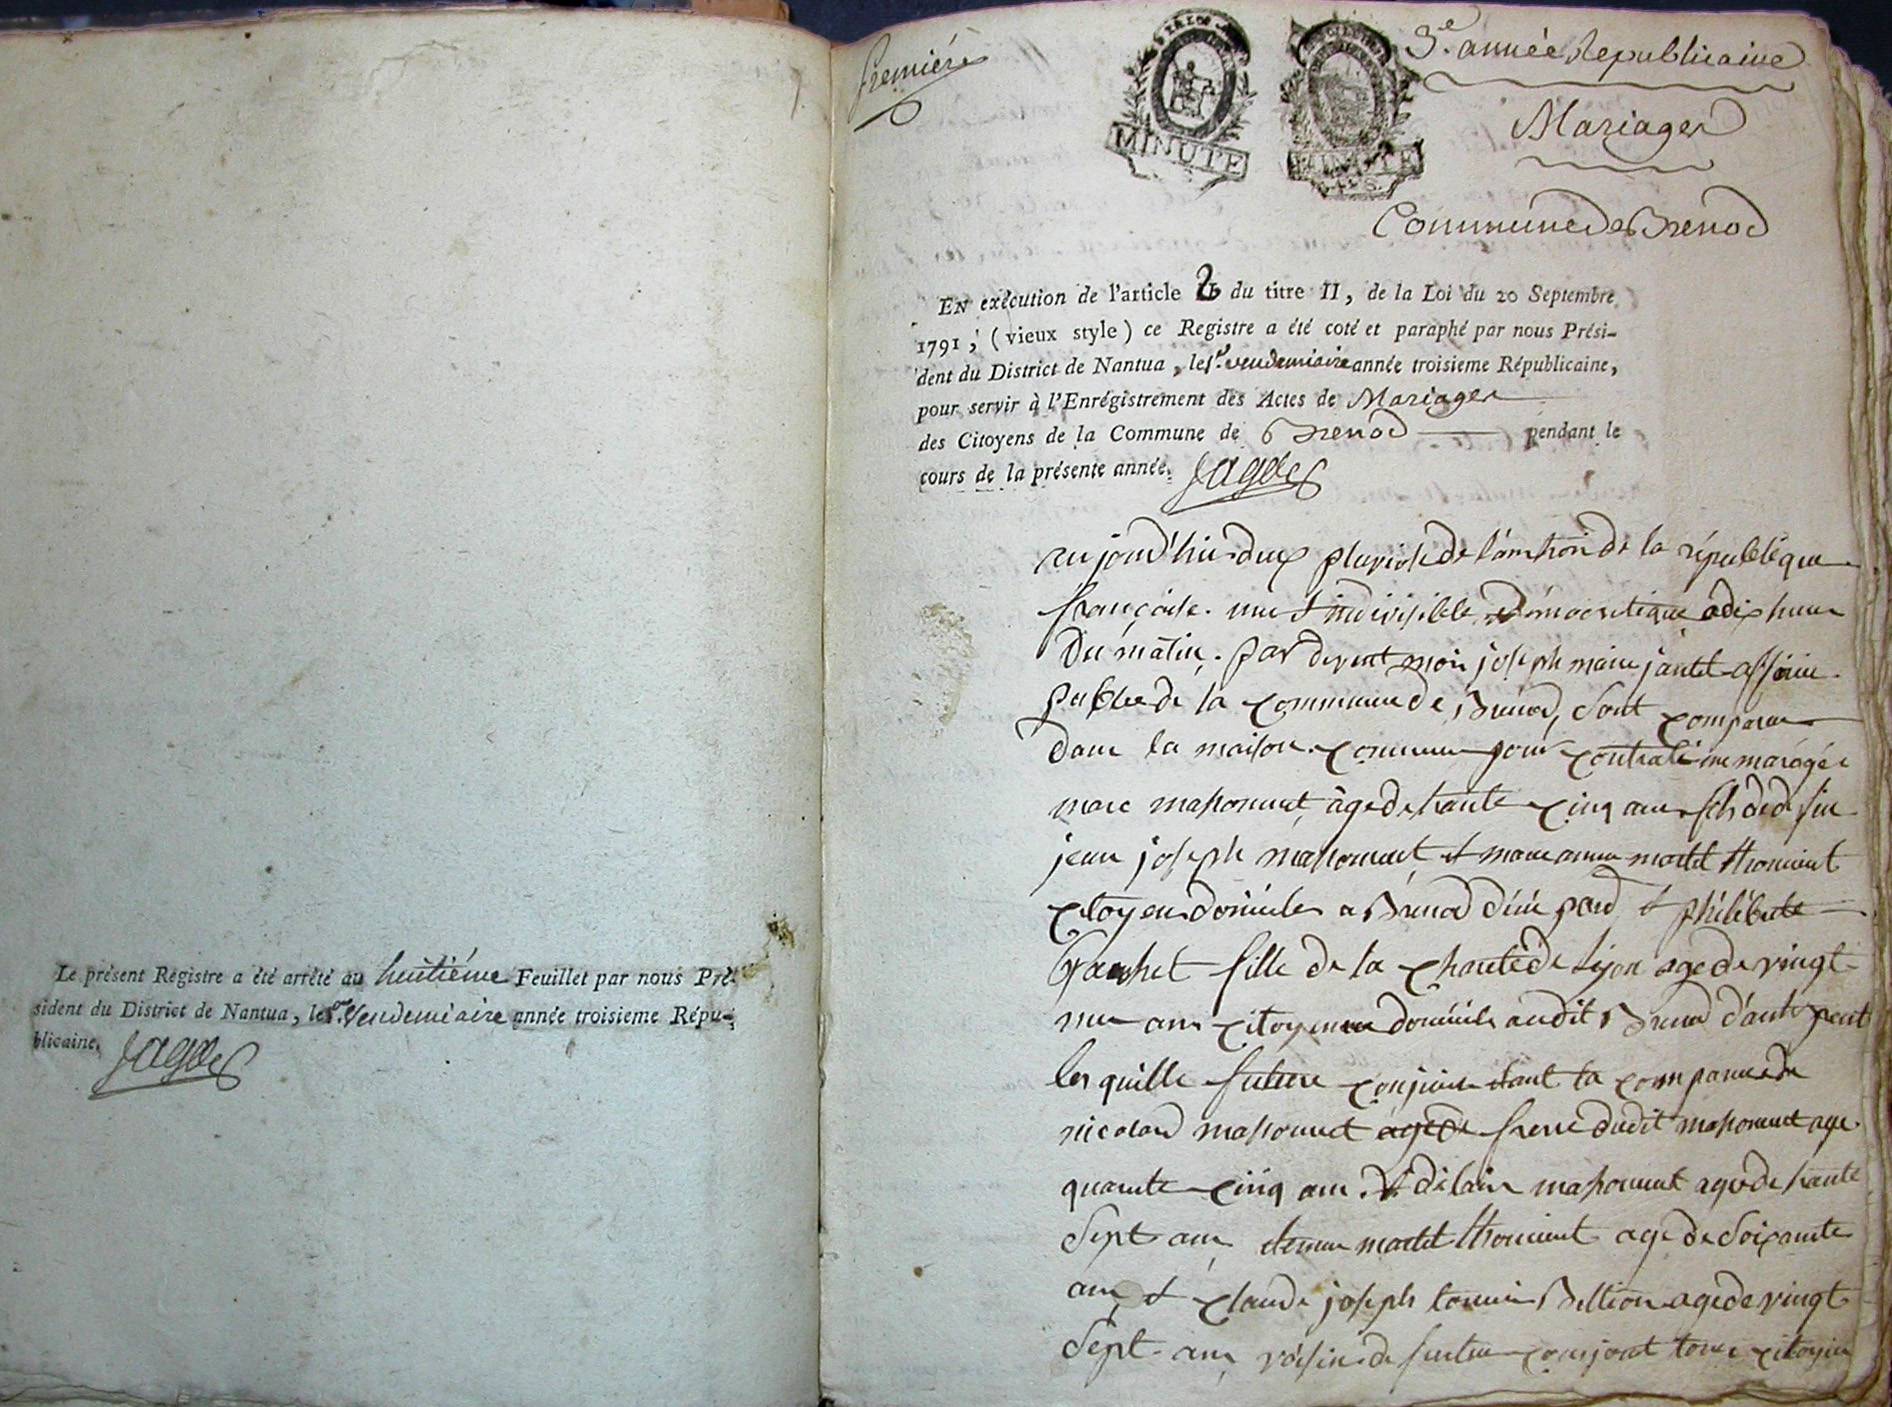 Le présent Régistre a été arrêté au huitiéme Feuillet par nous Pré-
sident du District de Nantua, le 1er. Vendemiaire année troisieme Répu-
blicaine.
Jagde
premiére
MINUTE
MINUTE
3e. année Republicaine
Mariages
Commune de Brenod
EN exécution de l'article 2 du titre II, de la Loi du 20 Septembre
1791, (vieux style) ce Registre a été coté et paraphé par nous Prési-
dent du District de Nantua, le 1er. vendemiaire année troisieme Républicaine,
pour servir à l'Enrégistrement des Actes de Mariages
des Citoyens de la Commune de Brenod pendant le
cours de la présente année.
Jagde
aujourd'hui deux pluviose de l'an troi de la république
françoise. une & indivisible & Démocratique a dix heure
Du matin. par devent moi joseph marie jantet officier
publice de la commune de Brenod, sont comparue
dans la maison commune pour contraté une mariage
marc massonnet âgé de trante cinq ans fils de feu
jean joseph massonnet & marie anne martel
citoyen domicile a Brenod d'une pard & philiberte
Gauchet fille de la charité de Lyon age de vingt
neuf ans citoyenne domicile audit Brenod d'autre part
lesquelle future conjoint etant la compagnie de
nicolard massonnet frere dudit massonnet age
quarante cinq ans. & massonnet age de trante
Sept ans martel age de Soixante
ans & claude joseph Billion age de vingt
Sept ans voisin de futur conjoint tous citoyen